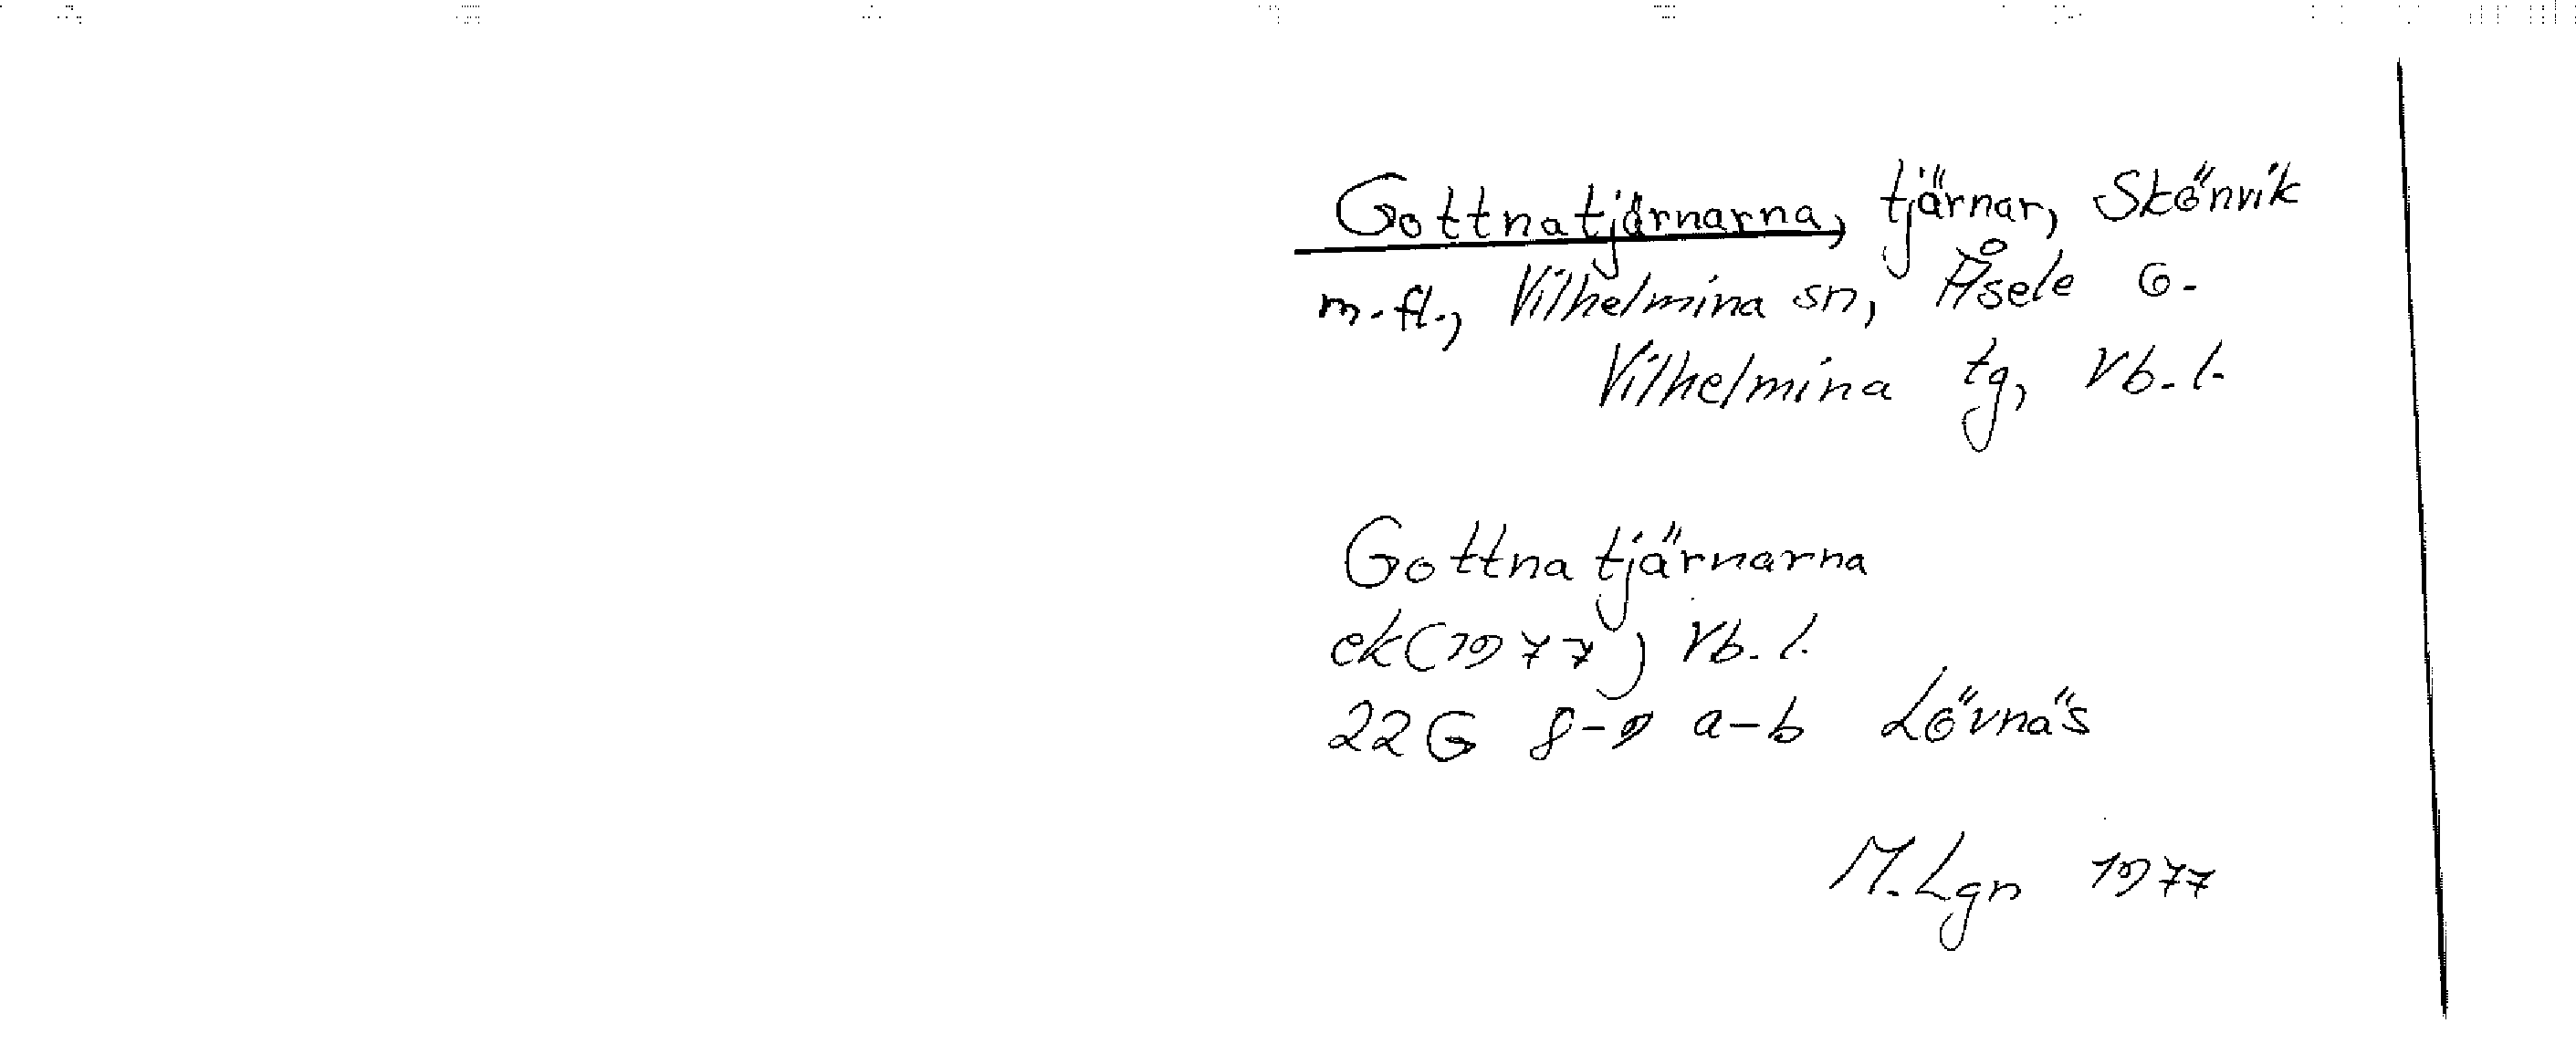 Gottnatjärnarna, tjärnar, Skönvik
m.fl., Vilhelmina sn, Åsele o.
Vilhelmina tg, Vb.l.
Gottnatjärnarna
ek(1977) Vb.l.
22G 8-9 a-b Lövnäs
M.Lgn 1977